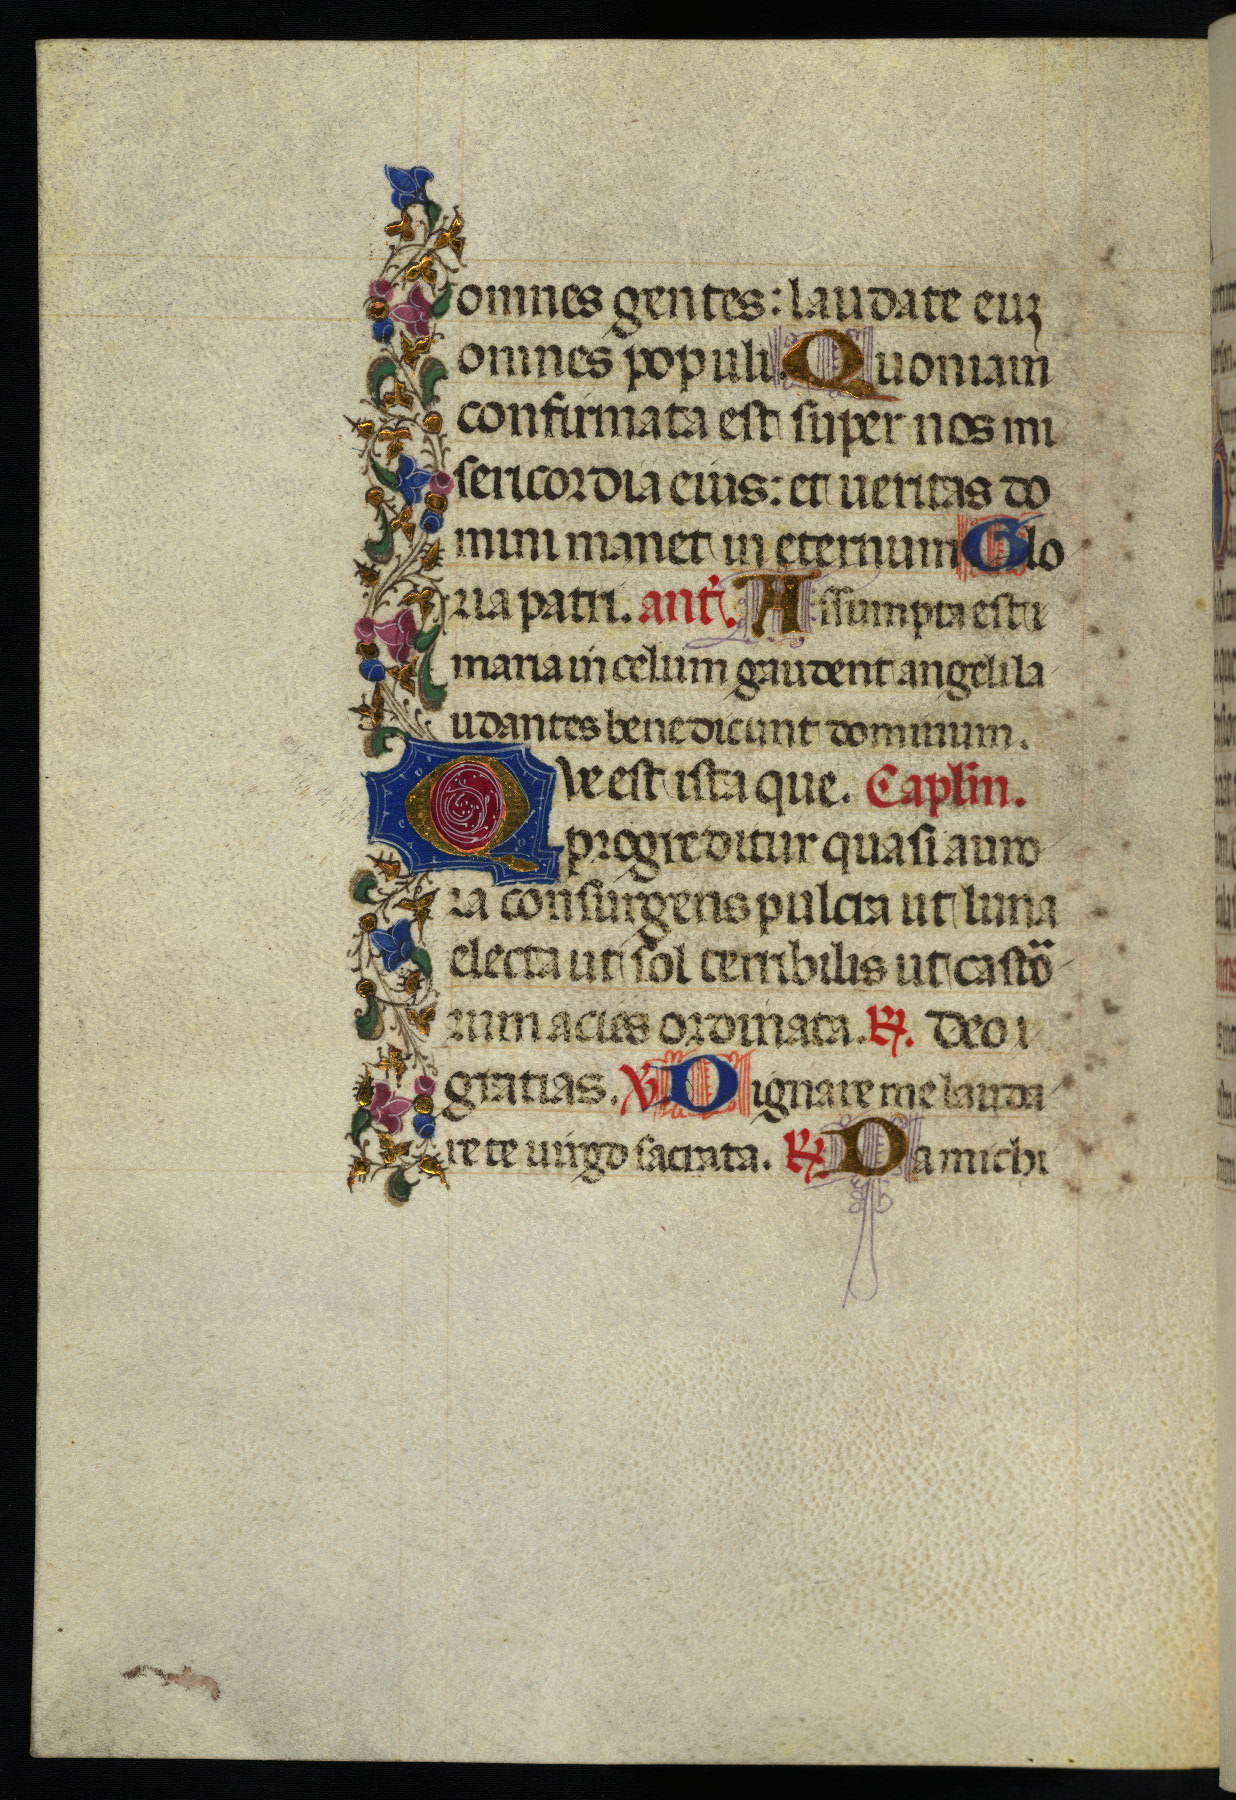 omnes gentes: laudate euʒ
omnes populi. Quoniam
confirmata est super nos mi
sericordia eius: et ueritas do
mini manet in eternum Glo
ria patri. ant̃. Assumpta est
maria in celum gaudent angeli la
udantes benedicunt dominum.
Que est ista que. Caplm̃.
progreditur quasi auro
ra consurgens pulcra ut luna
electa ut sol terribilis ut castro
rum acies ordinata. ℟. Deo
gratias. ℣ Dignare me lauda
re te uirgo sacrata. ℟ Da michi